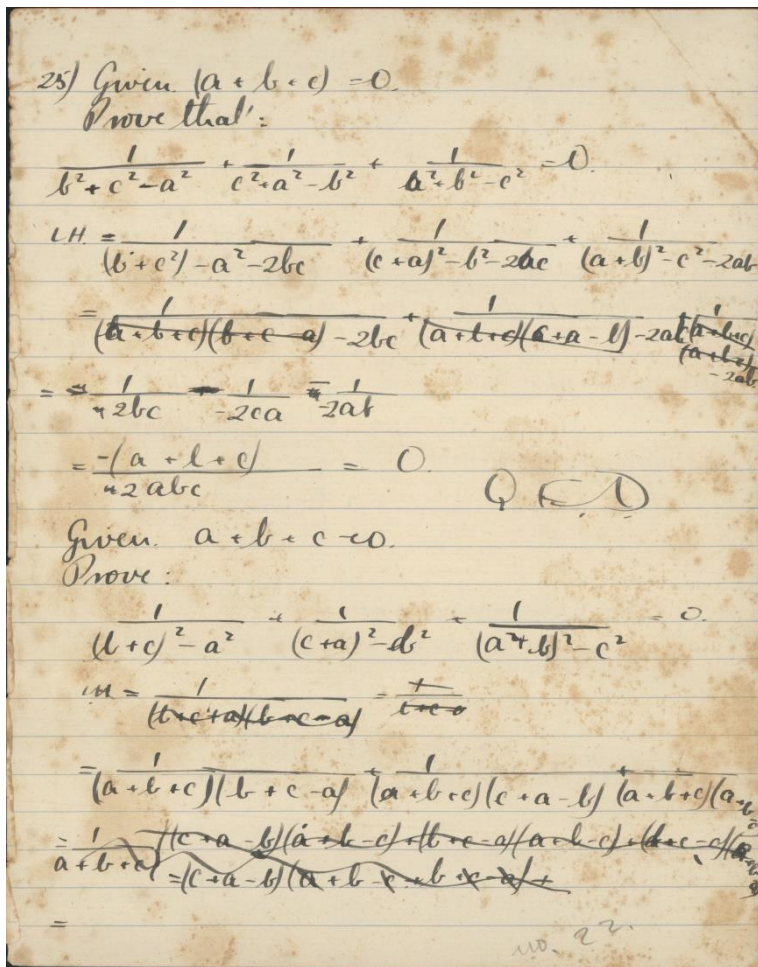 25) Given (a + b + c) = 0.
Prove that:
1/(b² + c² - a²) + 1/(c² + a² - b²) + 1/(a² + b² - c²) = 0.
LH. = 1/((b + c²) - a² - 2bc) + 1/((c + a)² - b² - 2ac) + 1/((a + b)² - c² - 2ab)
= 1/((a + b + c)(b + c - a) - 2bc) + 1/((a + b + c)(c + a - b) - 2ac) + 1/((a + b + c)(a + b - c) - 2ab)
= 1/-2bc 1/-2ca 1/-2ab
= -(a + b + c)/2abc = 0.
Q E D
Given. a + b + c = 0.
Prove:
1/((b + c)² - a²) + 1/((c + a)² - b²) + 1/((a² + b)² - c²) = 0.
LH = 1/((b + c + a)(b + c - a))
= 1/((a + b + c)(b + c - a)) + 1/((a + b + c)(c + a - b)) + (a + b + c)(a + b
= 1/(a + b + c) ((c + a - b)(a + b - c) + (b + c - a)(a + b - c) + (b + c - a)
= (c + a - b)(a + b - c + b + c - a) +
=
no. 22.